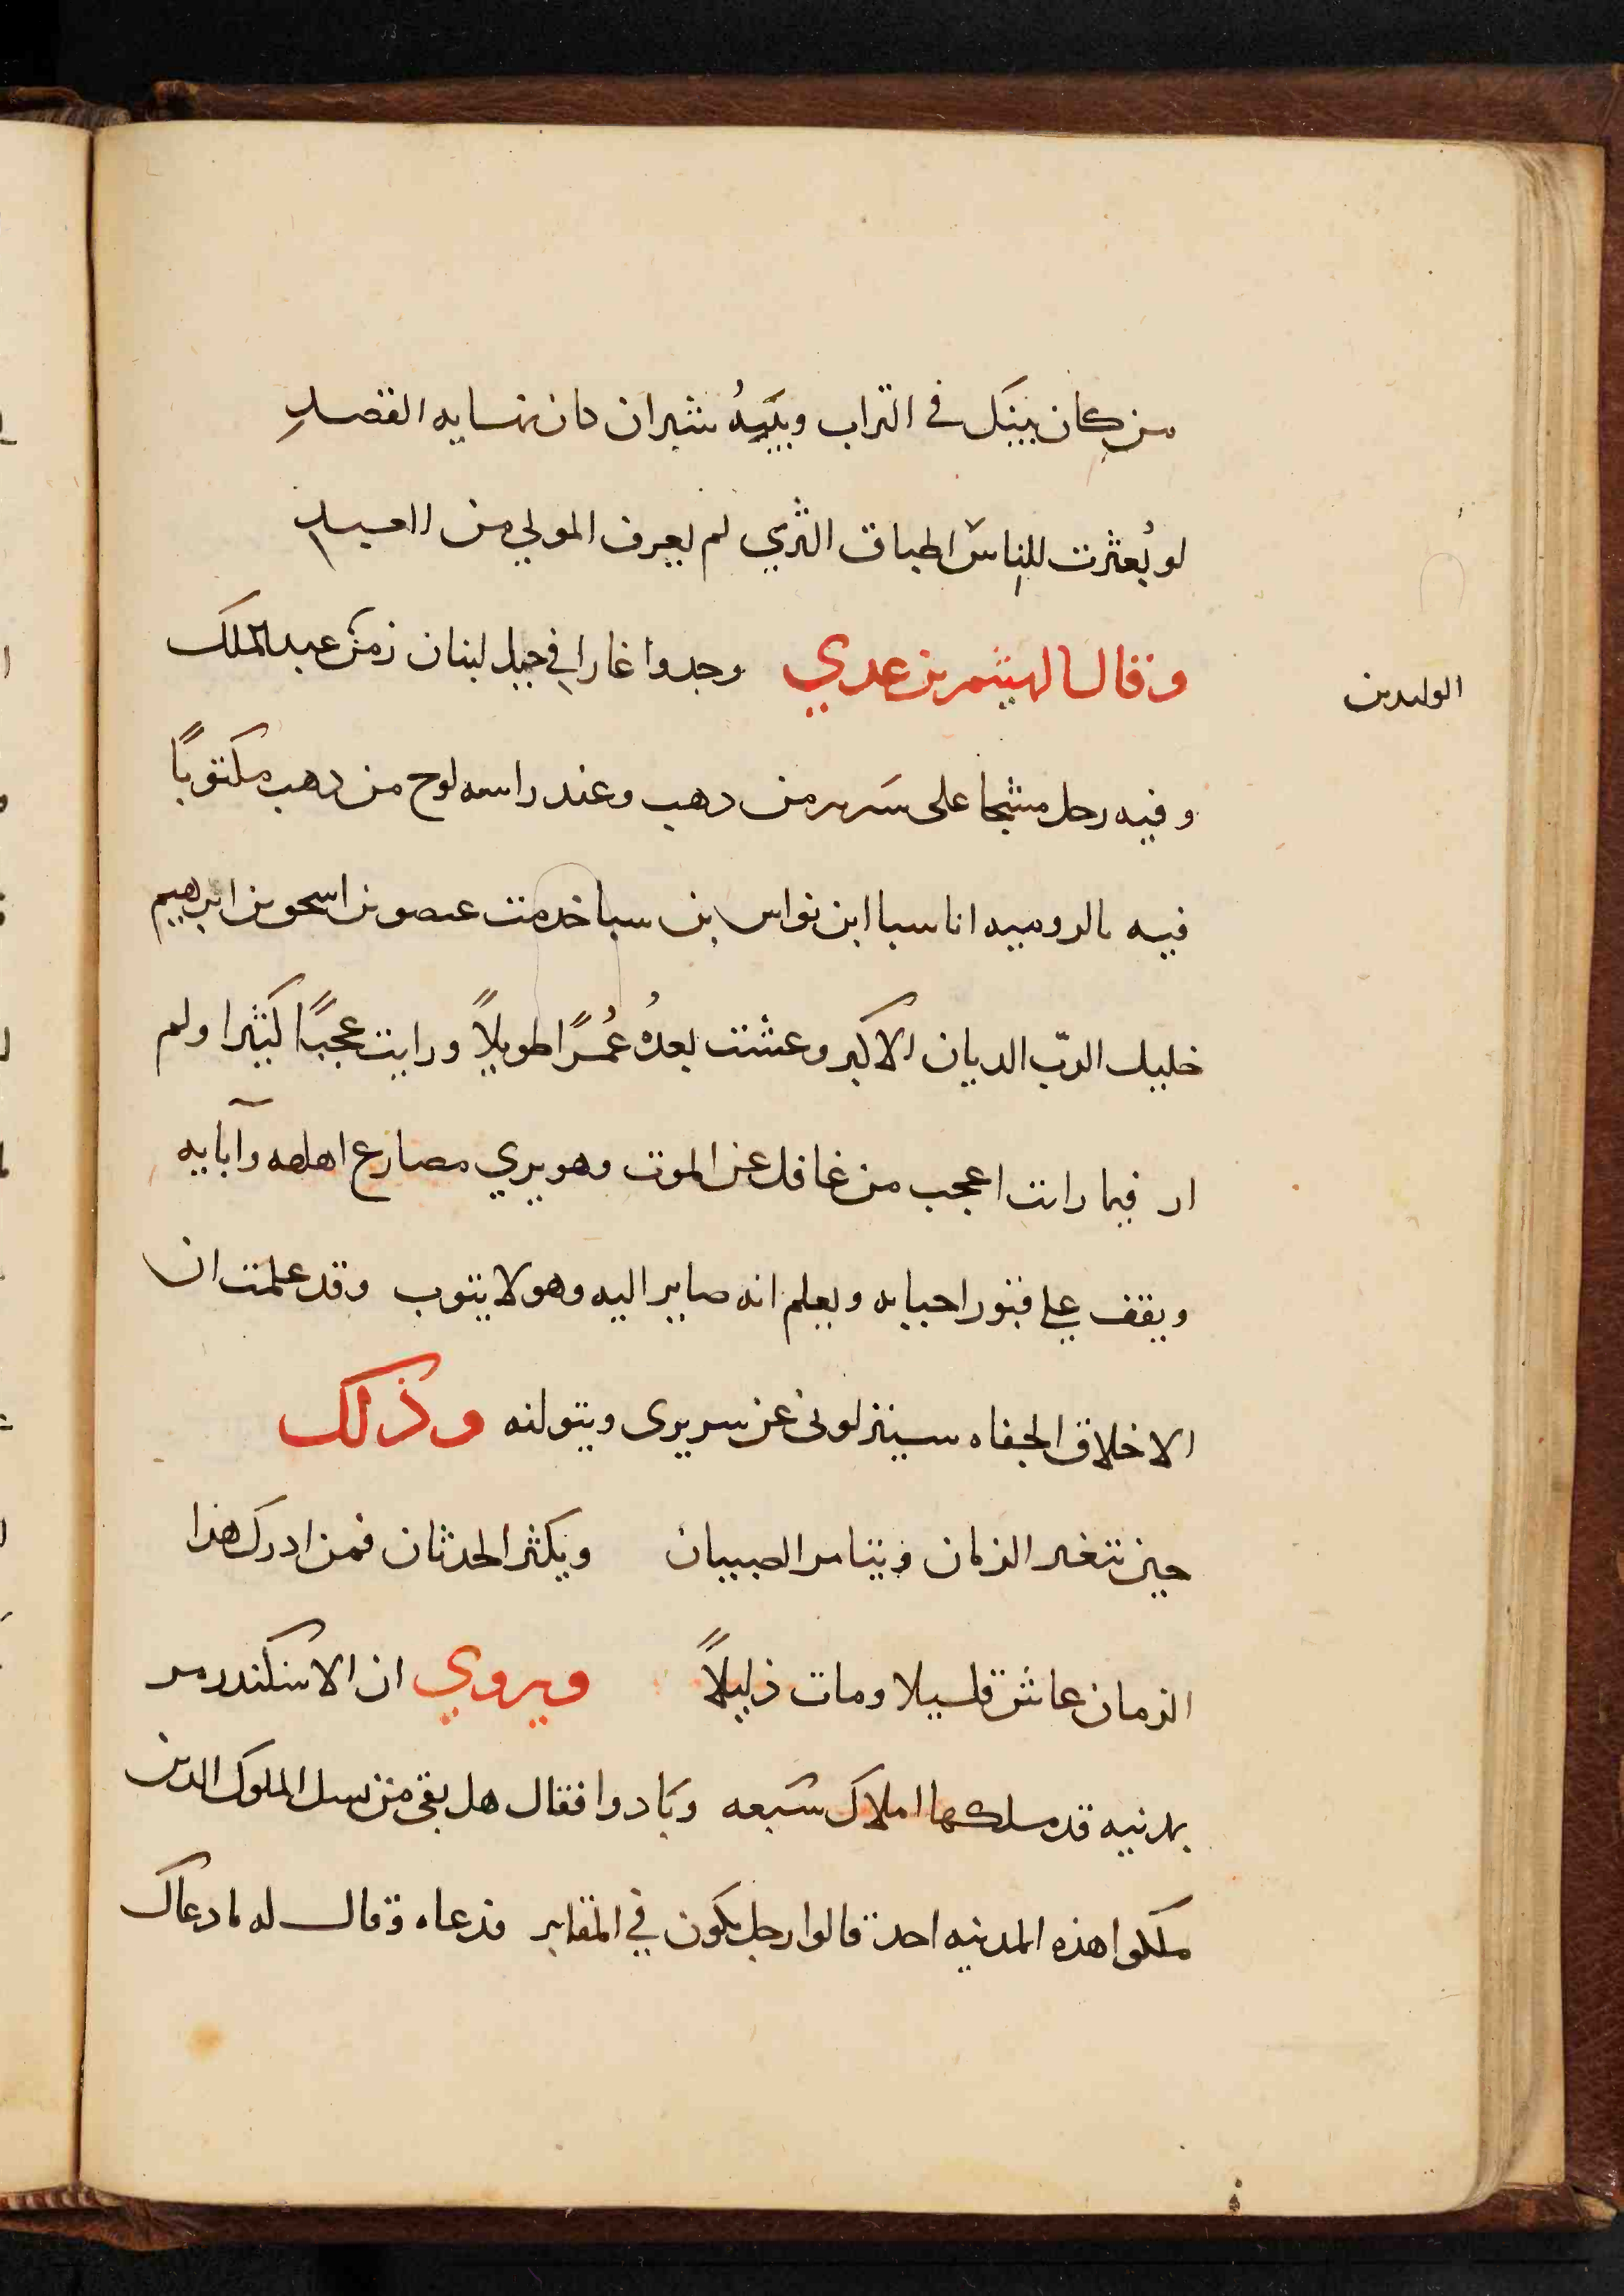 من كان بينك في التراب وبينه شبران كان بمنتهى البعد
لو بُعثرت للناس اطباق الثري لم يعرف المولي من العبد
وقال الهيثم بن عدي وجدوا غارا في جبل لبنان زمن عبد الملك
الوليد بن
وفيه رجل مسجا على سرير من دهب وعند راسه لوح من دهب مكتوبًا
فيه بالروميه انا سبا ابن نواس بن سبا خدمت عيصو بن اسحق بن ابرهيم
خليل الربّ الديان الاكبر وعشت بعدهُ عُمرًا طويلًا ورايت عجبًا كثيرا ولم
ار فيما رايت اعجب من غافل عن الموت وهو يري مصارع اهله وآبايه
ويقف علي قبور احبابه ويعلم انه صاير اليه وهو لا يتوب وقد علمت ان
الاخلاق الجفاه سينزلوني عن سريري ويتولنه وذلك
حين تتغير الزمان ويتامر الصبيان ويكثر الحدثان فمن ادرك هذا
الزمان عاش قليلا ومات ذليلًا ويروي ان الاسكندر مر
بمدنيه قد ملكها املاك سبعه وبادوا فقال هل بقى من نسل الملوك الدين
ملكوا هذه المدنيه احد قالوا رجل يكون في المقابر فدعاه وقال له ما دعاك